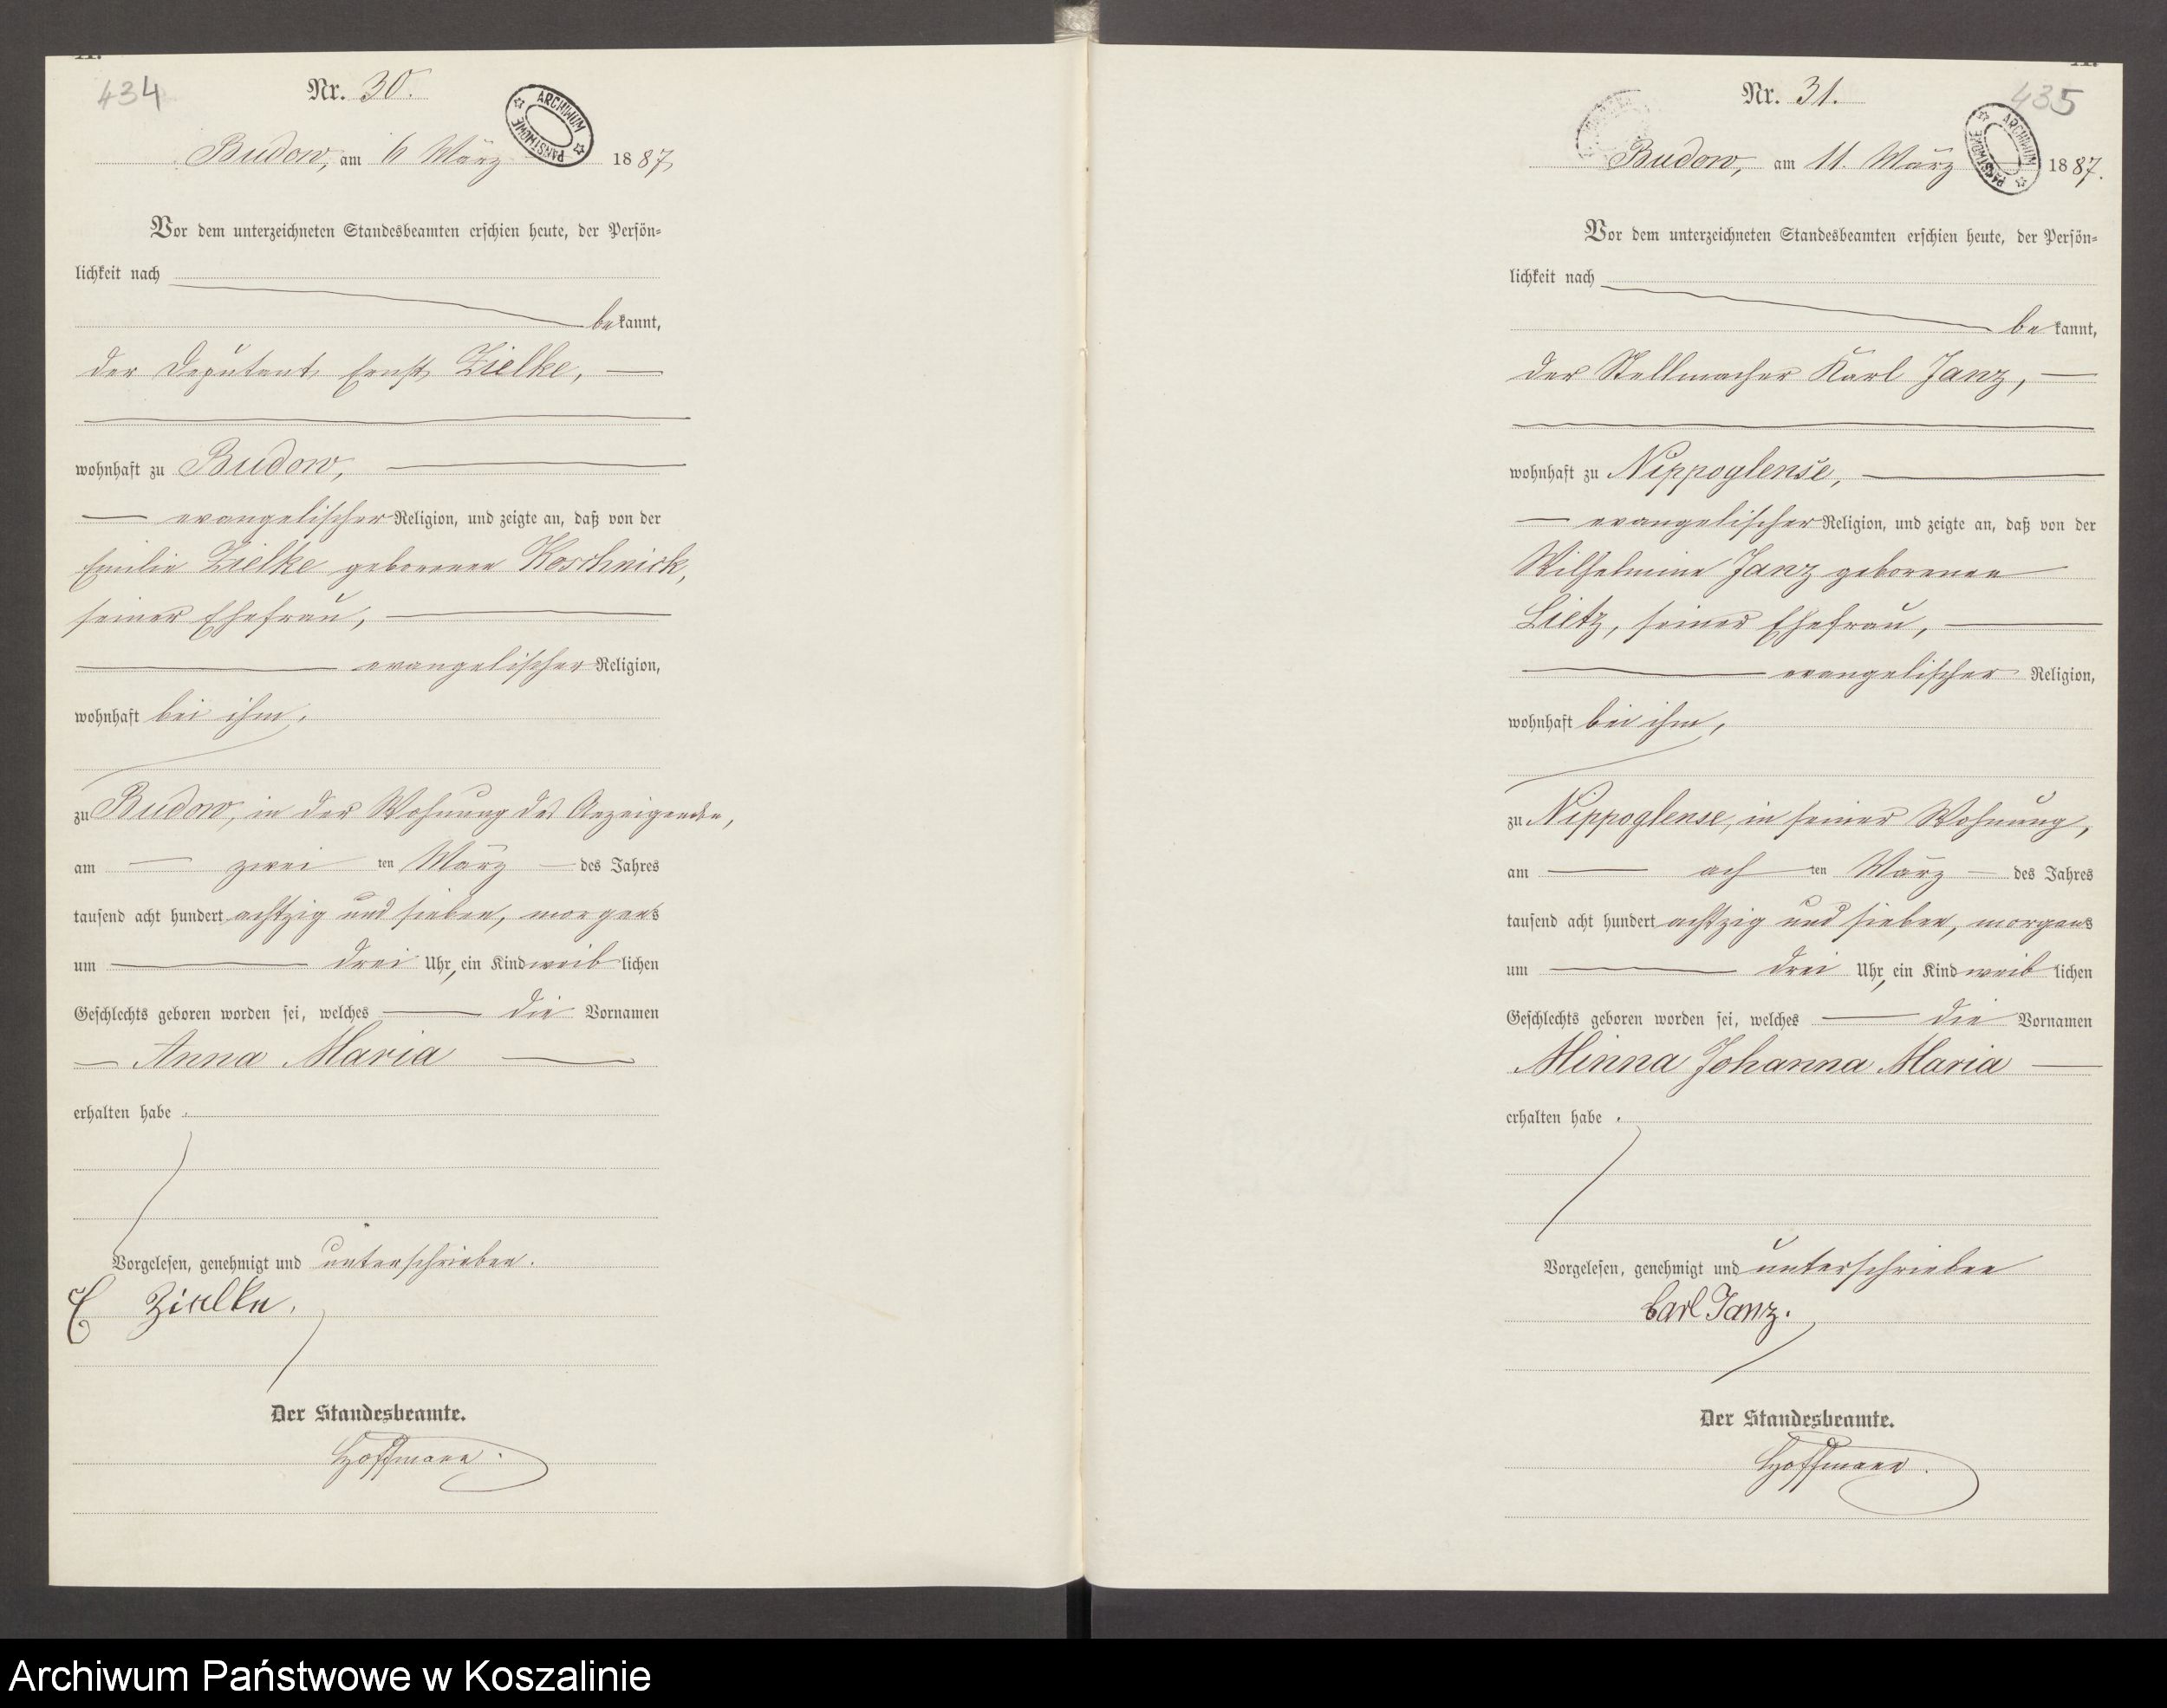 434
Nr. 30.
ARCHIWUM PAŃSTWOWE
Budow, am 6 März 1887,
Vor dem unterzeichneten Standesbeamten erschien heute, der Persön-
lichkeit nach
bekannt,
der Deputant Ernst Zielke,
wohnhaft zu Budow,
evangelischer Religion, und zeigte an, daß von der
Emilie Zielke geborenen Koschnick,
seiner Ehefrau,
evangelischer Religion,
wohnhaft bei ihm,
zu Budow, in der Wohnung des Anzeigenden,
am zweiten März des Jahres
tausend acht hundert achtzig und sieben, morgens
um drei Uhr, ein Kind weiblichen
Geschlechts geboren worden sei, welches die Vornamen
Anna Maria
erhalten habe.
Vorgelesen, genehmigt und unterschrieben.
E Zielke.
Der Standesbeamte.
Hoffmann.
435
Nr. 31.
ARCHIWUM PAŃSTWOWE
Budow, am 11. März 1887.
Vor dem unterzeichneten Standesbeamten erschien heute, der Persön-
lichkeit nach
bekannt,
der Stellmacher Karl Janz,
wohnhaft zu Nippoglense,
evangelischer Religion, und zeigte an, daß von der
Wilhelmine Janz geborenen
Lietz, seiner Ehefrau,
evangelischer Religion,
wohnhaft bei ihm,
zu Nippoglense, in seiner Wohnung,
am achten März des Jahres
tausend acht hundert achtzig und sieben, morgens
um drei Uhr, ein Kind weiblichen
Geschlechts geboren worden sei, welches die Vornamen
Minna Johanna Maria
erhalten habe.
Vorgelesen, genehmigt und unterschrieben
Carl Janz.
Der Standesbeamte.
Hoffmann.
Archiwum Państwowe w Koszalinie